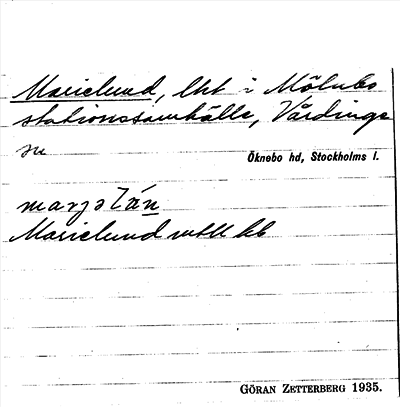 Marielund, lht i Mölnbo
stationssamhälle, Vårdinge
sn Öknebo hd, Stockholms l.
marjəlán
Marielund
GÖRAN ZETTERBERG 1935.